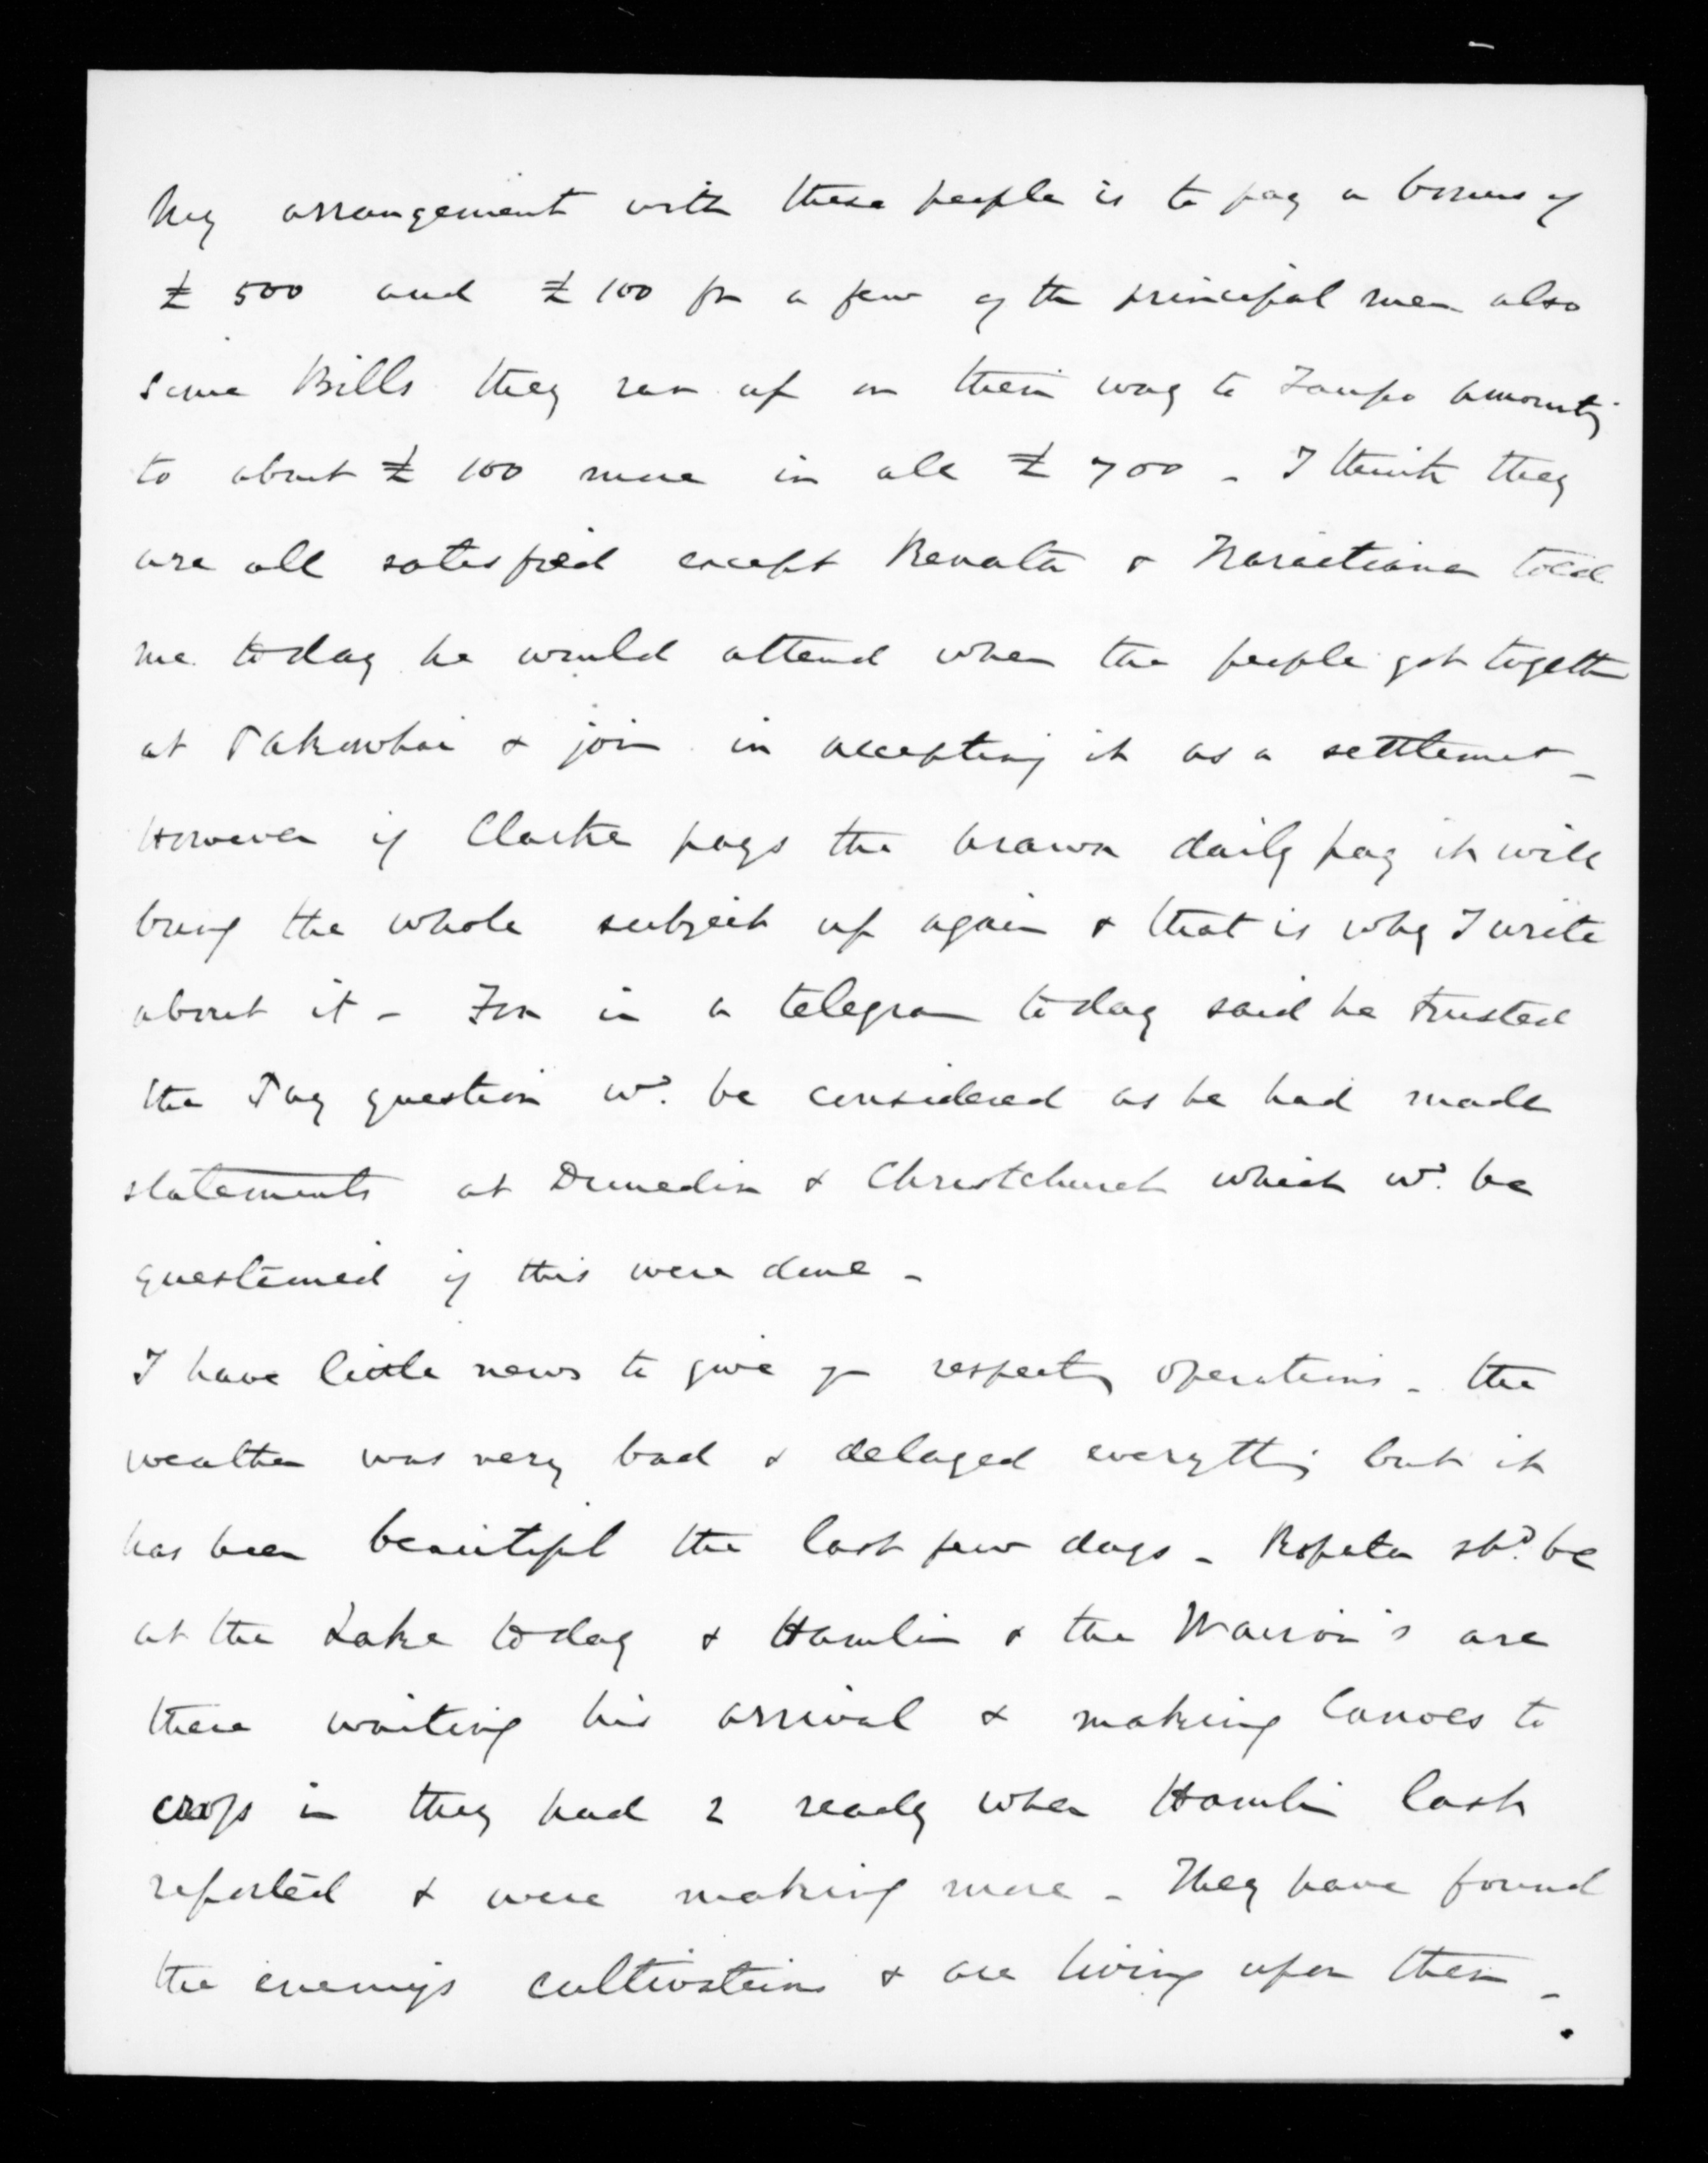 My arrangement with these people is to pay a bonus of
£ 500 and £ 100 for a few of the principal men also
some Bills they ran up on their way to Taupo amounting
to about £ 100 more in all £ 700 - I think they
are all satisfied except Renata & Karaitiana told
me today he would attend when the people got together
at Pakowhai & join in accepting it as a settlement -
However if Clarke pays the Arawa daily pay it will
bring the whole subject up again & that is why I write
about it - Fox in a telegram today said he trusted
the Pay question wd. be considered as he had made
statements at Dunedin & Christchurch which wd. be
questioned if this were done -
I have little news to give you respecting operations - the
weather was very bad & delayed everything but it
has been beautiful the last few days - Ropata shd. be
at the Lake today & Hamlin & the Wairoa's are
there waiting his arrival & making Canoes to
cross in they had 2 ready when Hamlin last
reported & were making more - They have found
the enemys cultivations & are living upon them -